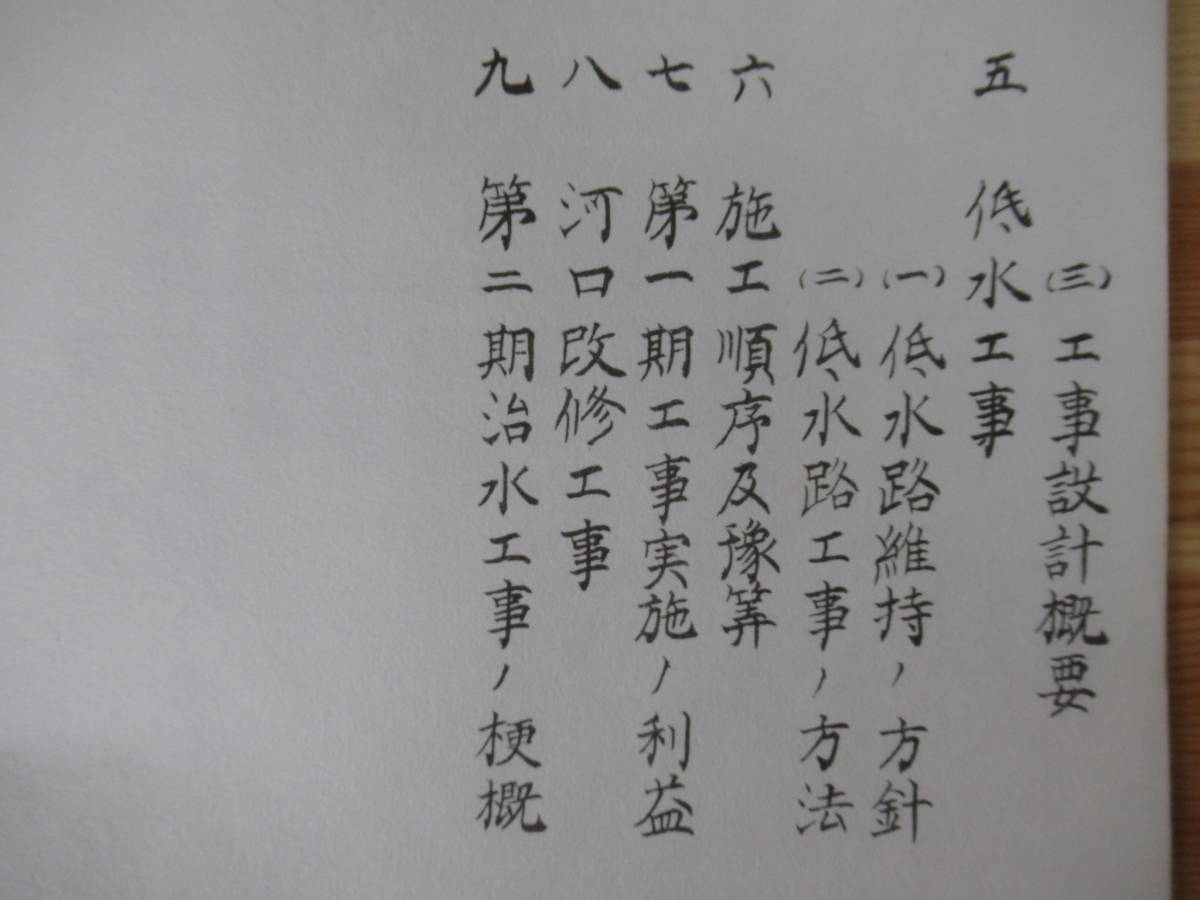 (三) 工事設計概要
五 低水工事
(一) 低水路維持ノ方針
(二) 低水路工事ノ方法
六 施工順序及豫算
七 第一期工事実施ノ利益
八 河口改修工事
九 第二期治水工事ノ梗概